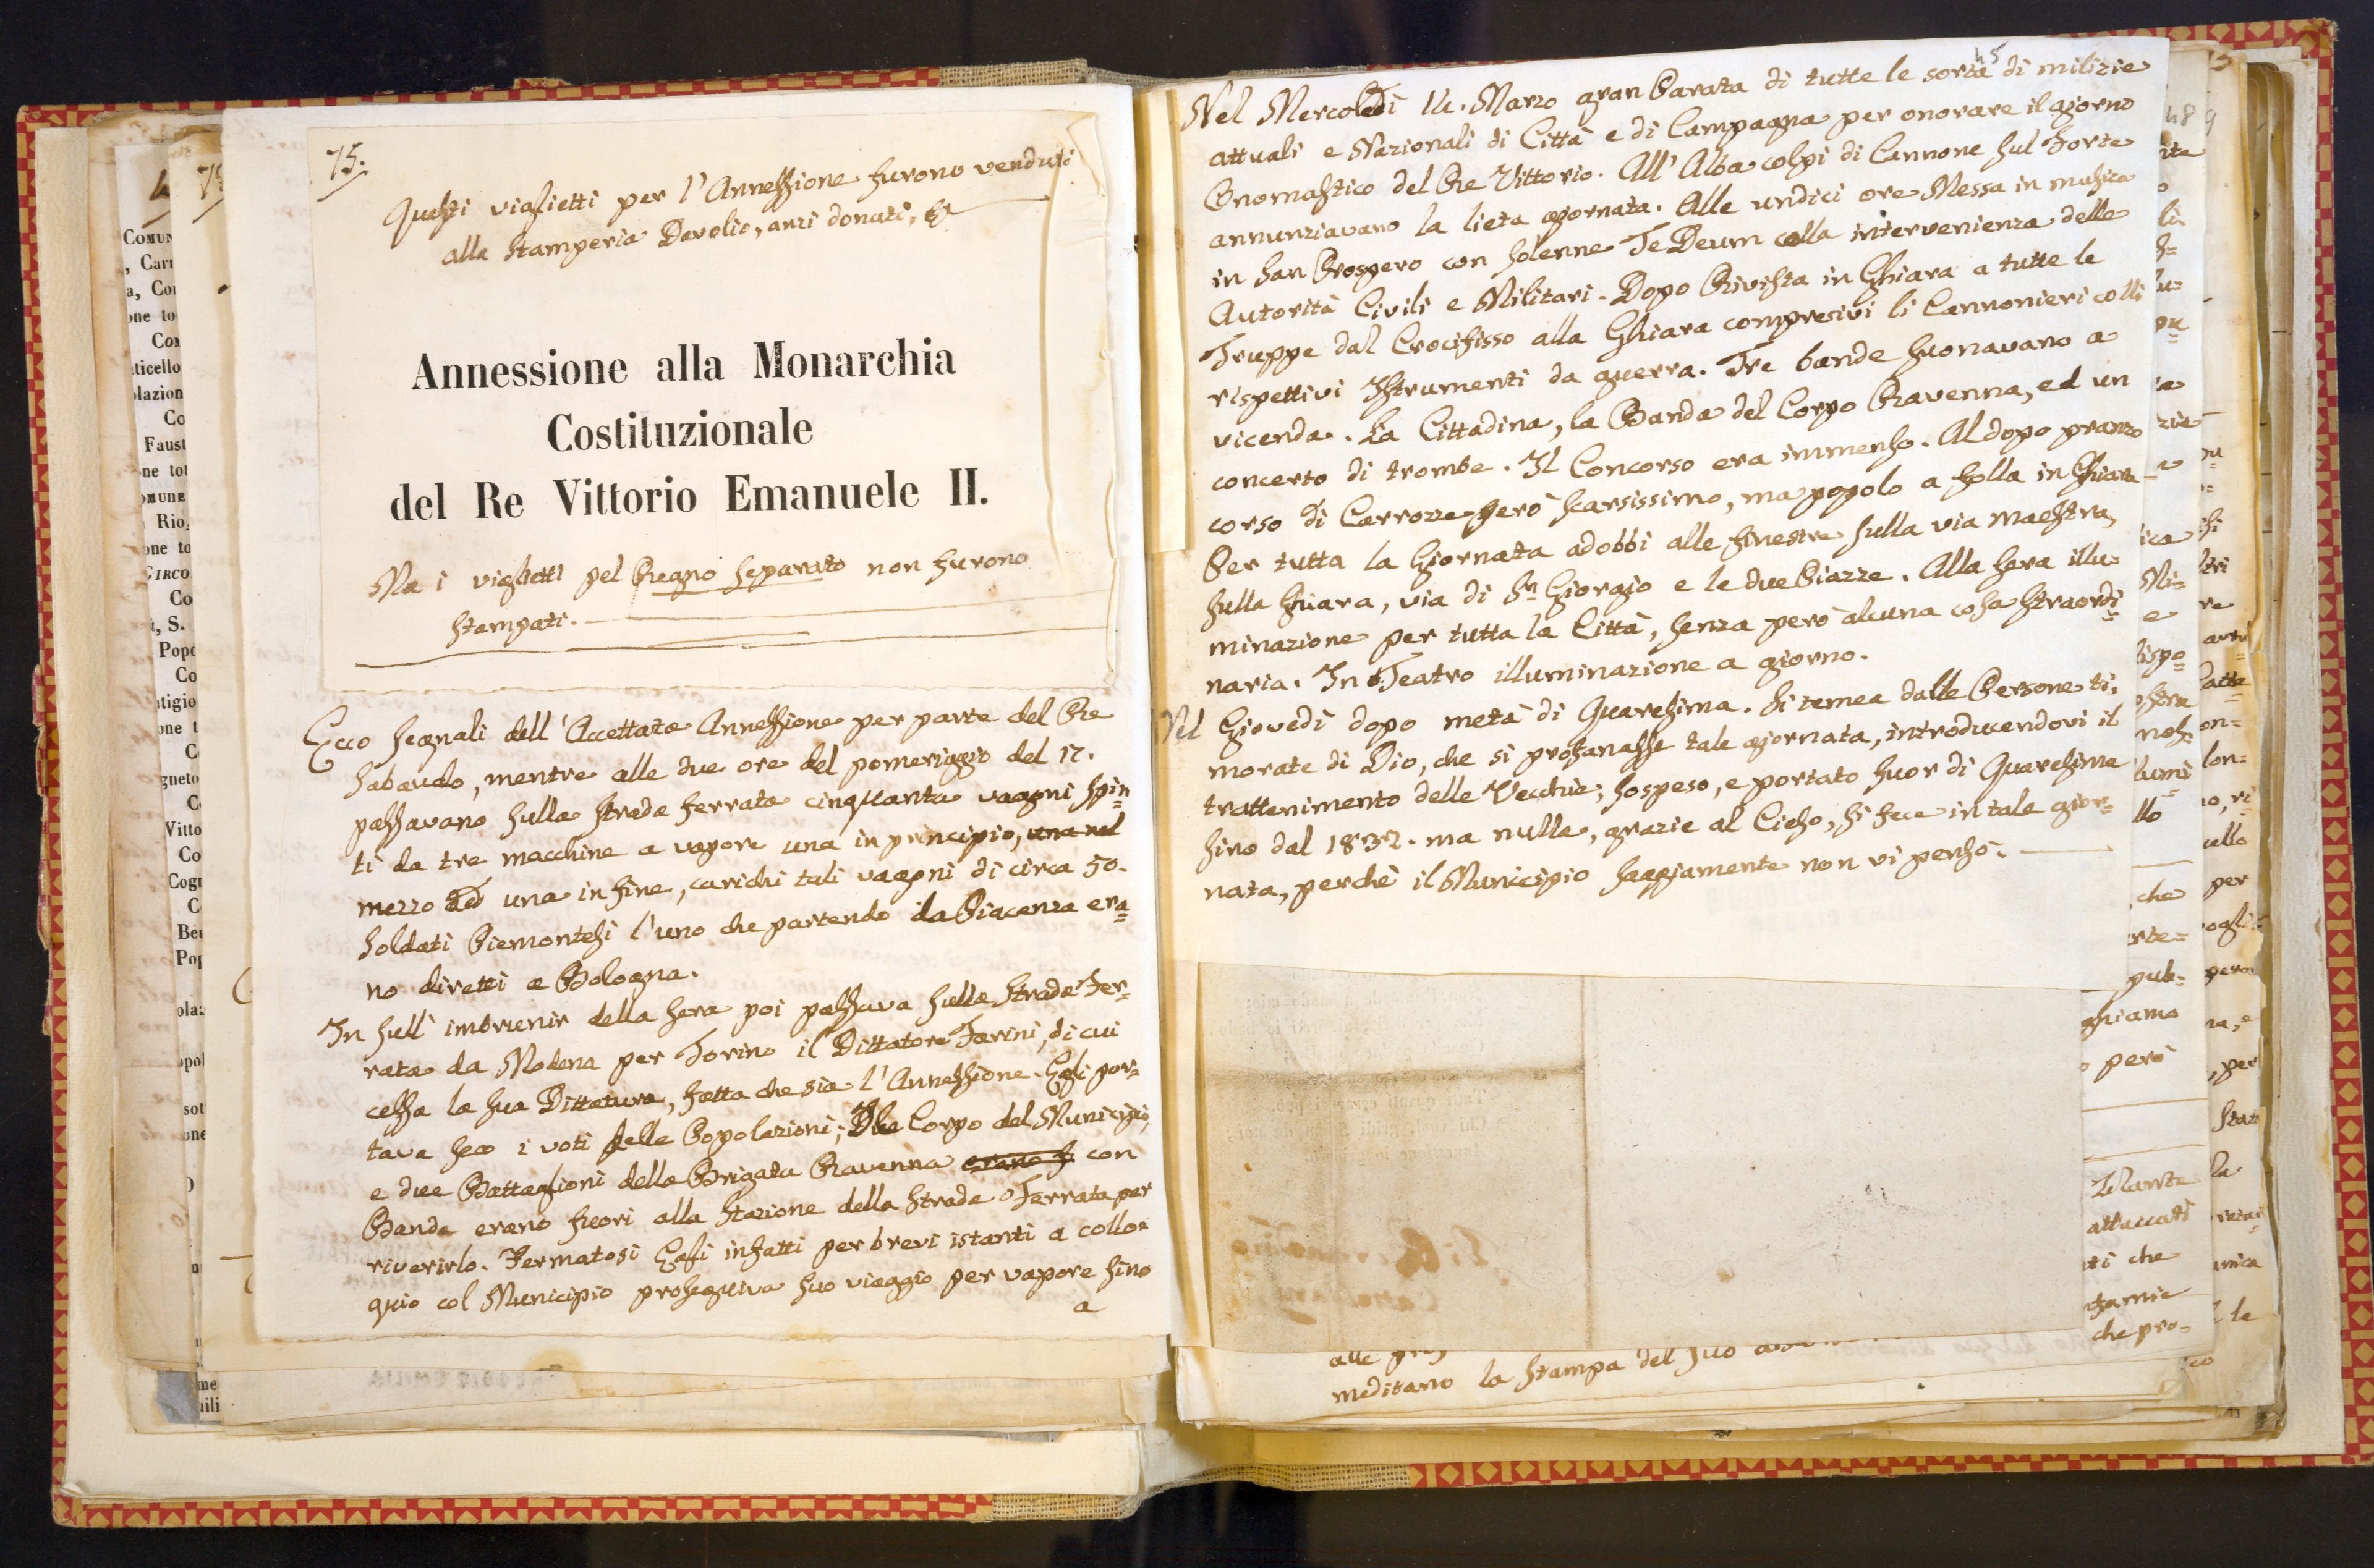 75.
Questi viglietti per l'Annessione furono venduti
alla Stamperia Davolio, anzi donati, &
Annessione alla Monarchia
Costituzionale
del Re Vittorio Emanuele II.
Ma i viglietti pel Regno separato non furono
stampati.
Ecco segnali dell'Accettata Annessione per parte del Re
Sabaudo, mentre alle due ore del pomeriggio del 17.
passavano sulla strada ferrata cinquanta vagoni spin=
ti da tre macchine a vapore una in principio, una nel
mezzo ed una in fine, carichi tali vagoni di circa 50.
Soldati Piemontesi l'uno che partendo da Piacenza era=
no diretti a Bologna.
In sull'imbrunir della sera poi passava sulla Strada Fer=
rata da Modena per Torino il Dittatore Farini, di cui
cessa la sua Dittatura, fatta che sia l'Annessione. Egli por=
tava seco i voti delle Popolazioni; Corpo del Municipio,
e due Battaglioni della Brigata Ravenna con
Banda erano fuori alla Stazione della Strada Ferrata per
riverirlo. Fermatosi Egli infatti per brevi istanti a collo=
quio col Municipio proseguiva suo viaggio per vapore sino
a
45
Nel Mercoledì 14. Marzo gran Parata di tutte le sorta di milizie
attuali e Nazionali di Città e di Campagna per onorare il giorno
Onomastico del Re Vittorio. All'Alba colpi di Cannone sul Forte
annunziavano la lieta giornata. Alle undici ore Messa in musica
in San Prospero con solenne TeDeum colla intervenienza delle
Autorità Civili e Militari. Dopo Rivista in Ghiara a tutte le
Truppe dal Crocifisso alla Ghiara compresivi li Cannonieri colli
rispettivi Istrumenti da guerra. Tre bande suonavano a
vicenda. La Cittadina, la Banda del Corpo Ravenna, ed un
concerto di trombe. Il Concorso era immenso. Al dopo pranzo
corso di Carrozze però scarsissimo, ma popolo a folla in Ghiara
Per tutta la Giornata adobbi alle finestre sulla via maestra,
sulla Ghiara, via di Sn Giorgio e le due Piazze. Alla sera illu=
minazione per tutta la Città, senza però alcuna cosa straordi=
naria. In Teatro illuminazione a giorno.
Nel Giovedì dopo metà di Quaresima. Si temea dalle Persone ti=
morate di Dio, che si profanasse tale giornata, introducendovi il
trattenimento delle Vecchie; sospeso, e portato fuor di Quaresima
sino dal 1832. ma nulla, grazie al Cielo, si fece in tale gior=
nata, perché il Municipio saggiamente non vi pensò.
meditano la stampa del suo